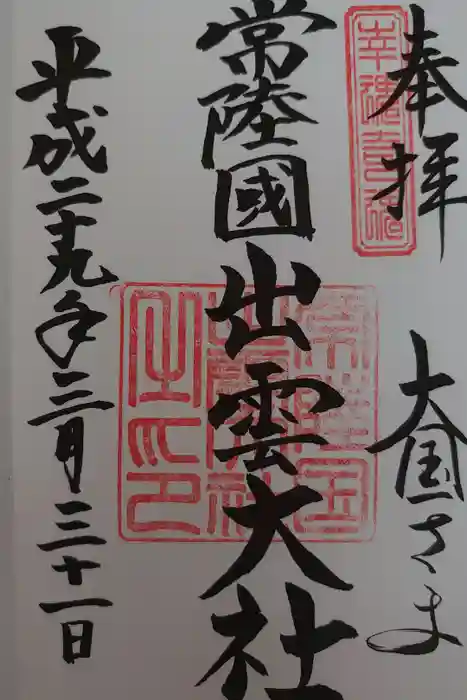 奉拝
大国さま
常陸國出雲大社
平成二十九年三月三十一日
幸魂奇魂
常陸国
出雲大社
之印